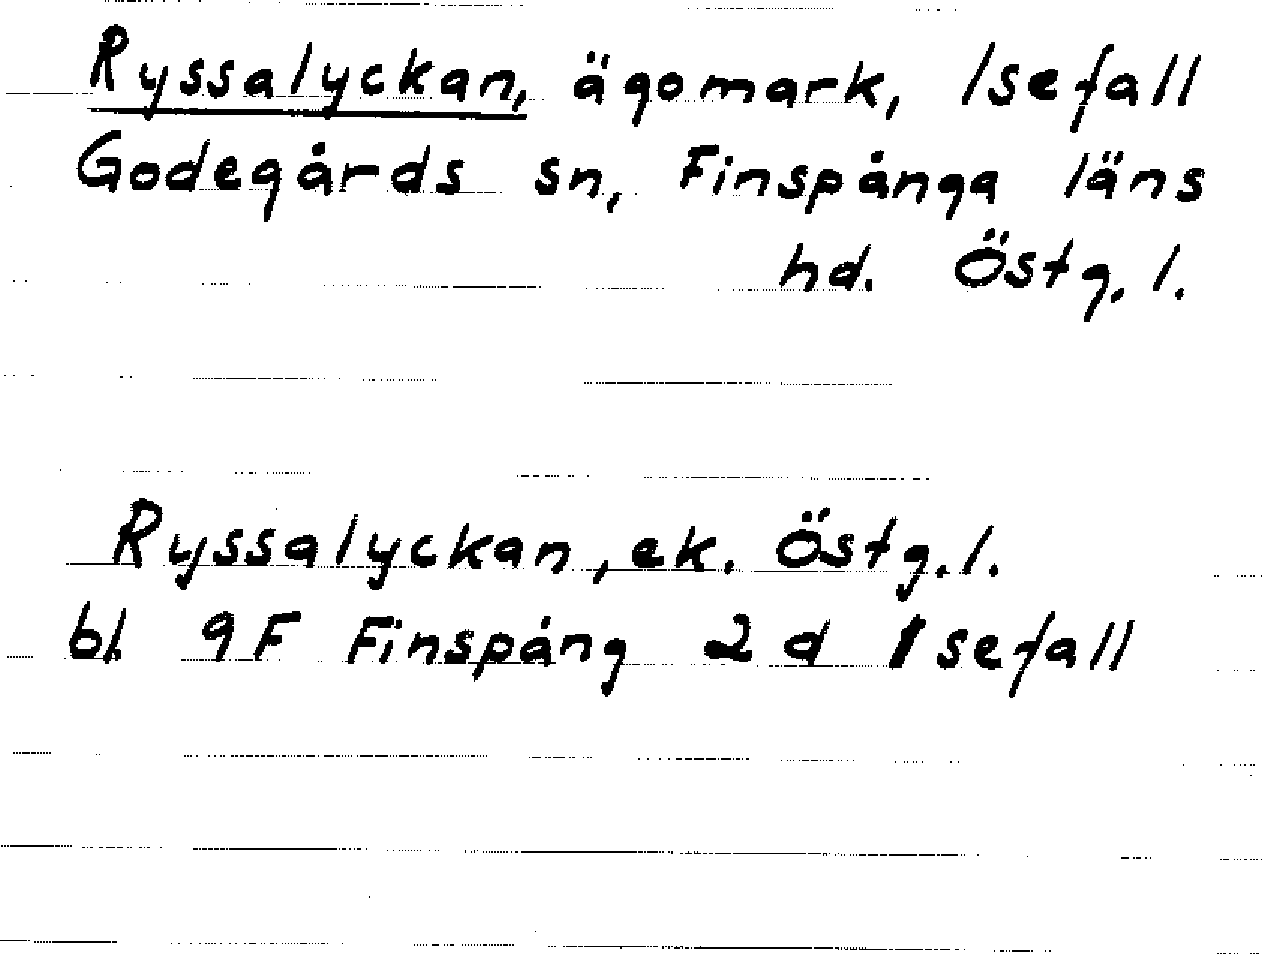 Ryssalyckan, ägomark, Isefall
Godegårds sn, Finspånga läns
hd. Östg. l.
Ryssalyckan, ek. Östg. l.
bl. 9F Finspång 2 d Isefall